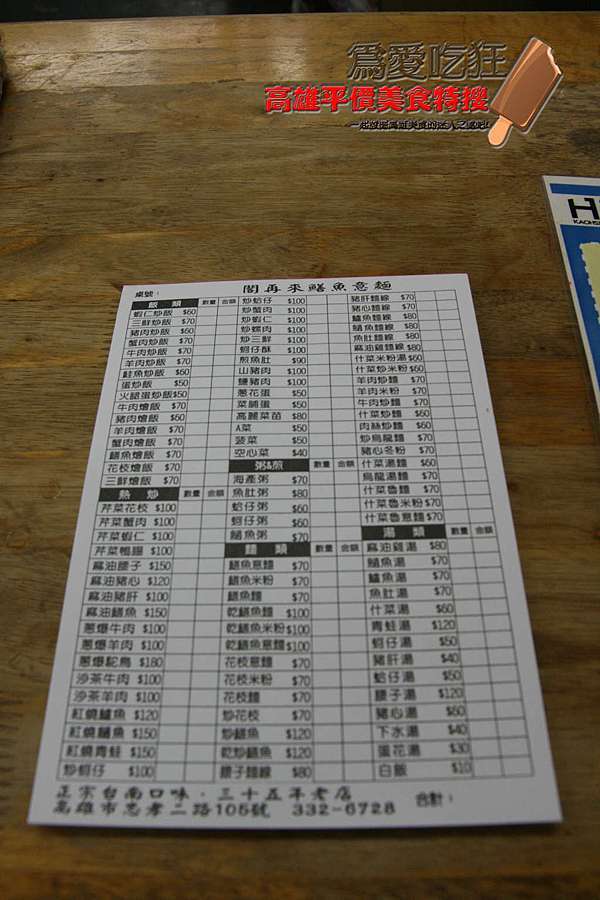 為愛吃狂
高雄平價美食特搜
H
桌號：
閣再來鱔魚意麵
飯類 數量 金額
蝦仁炒飯 $60
三鮮炒飯 $70
豬肉炒飯 $60
蟹肉炒飯 $70
牛肉炒飯 $70
羊肉炒飯 $70
鮭魚炒飯 $60
蛋炒飯 $50
火腿蛋炒飯 $50
牛肉燴飯 $70
豬肉燴飯 $60
羊肉燴飯 $70
蟹肉燴飯 $70
鱔魚燴飯 $70
花枝燴飯 $70
三鮮燴飯 $70
熱炒 數量 金額
芹菜花枝 $100
芹菜蟹肉 $100
芹菜蝦仁 $100
芹菜鴨腸 $100
麻油腰子 $150
麻油豬心 $120
麻油豬肝 $100
麻油鱔魚 $150
蔥爆牛肉 $100
蔥爆羊肉 $100
蔥爆鴕鳥 $180
沙茶牛肉 $100
沙茶羊肉 $100
紅燒鱸魚 $120
紅燒鱔魚 $150
紅燒青蛙 $150
炒蚵仔 $100
炒蛤仔 $100
炒蟹肉 $100
炒蝦仁 $100
炒螺肉 $100
炒三鮮 $100
蚵仔酥 $100
煎魚肚 $90
山豬肉 $100
鹽豬肉 $100
蔥花蛋 $50
菜脯蛋 $50
高麗菜苗 $80
A菜 $50
菠菜 $50
空心菜 $40
粥&煎 數量 金額
海產粥 $70
魚肚粥 $80
蛤仔粥 $60
蚵仔粥 $60
鱔魚粥 $70
麵類 數量 金額
鱔魚意麵 $70
鱔魚米粉 $70
鱔魚麵 $70
乾鱔魚麵 $100
乾鱔魚米粉 $100
乾鱔魚意麵 $100
花枝意麵 $70
花枝米粉 $70
花枝麵 $70
炒花枝 $70
炒鱔魚 $120
乾炒鱔魚 $120
腰子麵線 $80
豬肝麵線 $70
豬心麵線 $70
鱸魚麵線 $80
鱔魚麵線 $70
魚肚麵線 $80
麻油雞麵線 $80
什菜米粉湯 $60
什菜炒米粉 $60
羊肉炒麵 $70
羊肉米粉 $70
牛肉炒麵 $70
什菜炒麵 $60
肉絲炒麵 $60
炒烏龍麵 $70
豬心冬粉 $70
什菜湯麵 $60
烏龍湯麵 $70
什菜魯麵 $70
什菜魯米粉 $70
什菜魯意麵 $70
湯類 數量 金額
麻油雞湯 $80
鱔魚湯 $70
鱸魚湯 $70
魚肚湯 $70
什菜湯 $60
青蛙湯 $120
蚵仔湯 $50
豬肝湯 $40
蛤仔湯 $50
腰子湯 $120
豬心湯 $60
下水湯 $40
蛋花湯 $30
白飯 $10
正宗台南口味．三十五年老店 合計：
高雄市忠孝二路105號 332-6728